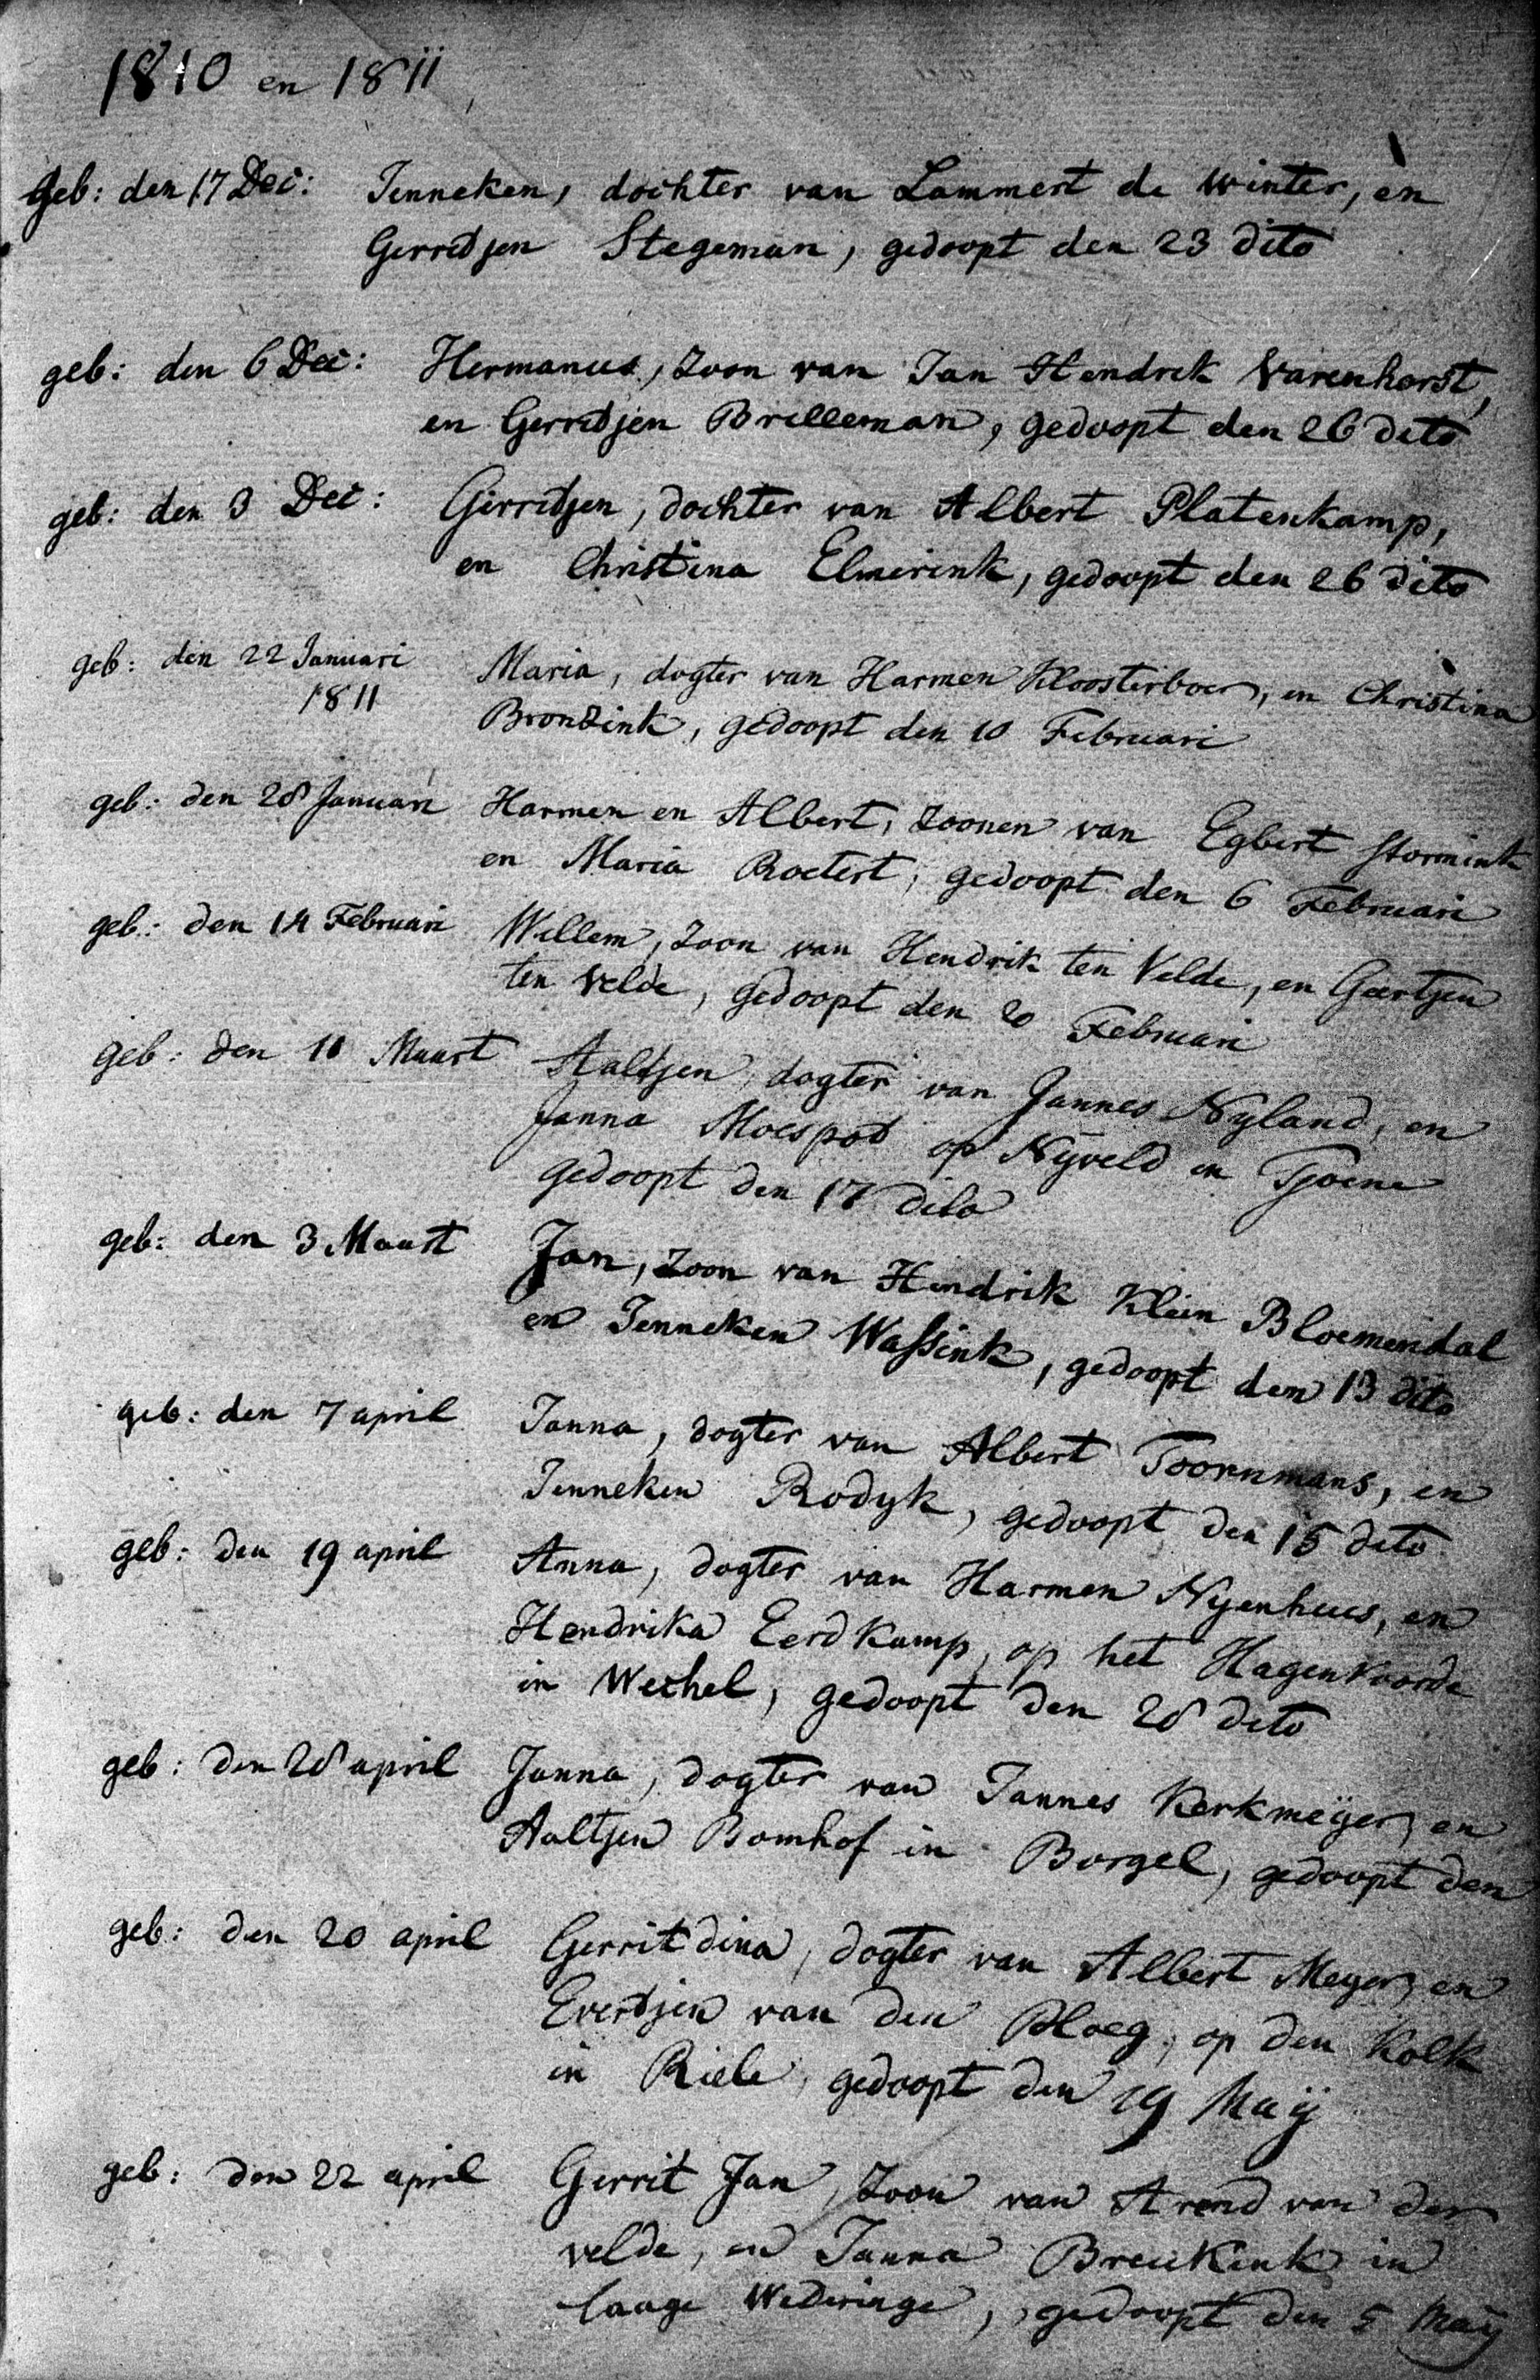 1810 en 1811
geb: den 17 Dec: Jenneken, dochter van Lammert de Winter, en
Gerredjen Stegeman, gedoopt den 23 dito
geb: den 6 Dec: Hermanus, zoon van Jan Hendrek Varenhorst,
en Gerredjen Brilleman, gedoopt den 26 dito
geb: den 3 Dec: Gerredjen, dochter van Albert Platenkamp,
en Christina Elmerink, gedoopt den 26 dito
geb: den 22 Januari 1811 Maria, dogter van Harmen Kloosterboer, en Christina
Bronzink, gedoopt den 10 Februari
geb: den 28 Januari Harmen en Albert, zoonen van Egbert Stormink
en Maria Roetert, gedoopt den 6 Februari
geb: den 14 Februari Willem, zoon van Hendrik ten Velde, en Geertjen
ten Velde, gedoopt den 20 Februari
geb: den 10 Maart Aaldjen, dogter van Jannes Nyland, en
Janna Moespot op Nijveld in Tjoene
gedoopt den 17 dito
geb: den 3 Maart Jan, zoon van Hendrik Klein Bloemendal
en Jenneken Wassink, gedoopt den 13 dito
geb: den 7 april Janna, dogter van Albert Toornmans, en
Jenneken Rodyk, gedoopt den 15 dito
geb: den 19 april Anna, dogter van Harmen Nyenhuis, en
Hendrika Eerdkamp, op het Hagenvoorde
in Wechel, gedoopt den 28 dito
geb: den 28 april Janna, dogter van Jannes Kerkmeijer, en
Aaltjen Bomhof in Borgel, gedoopt den
geb: den 20 april Gerritdina, dogter van Albert Meyer, en
Everdjen van den Ploeg, op den Kolk
in Riele, gedoopt den 19 Maij
geb: den 22 april Gerrit Jan, zoon van Arend van der
velde, en Janna Breukink in
laage Wederinge, gedoopt den 5 Maij